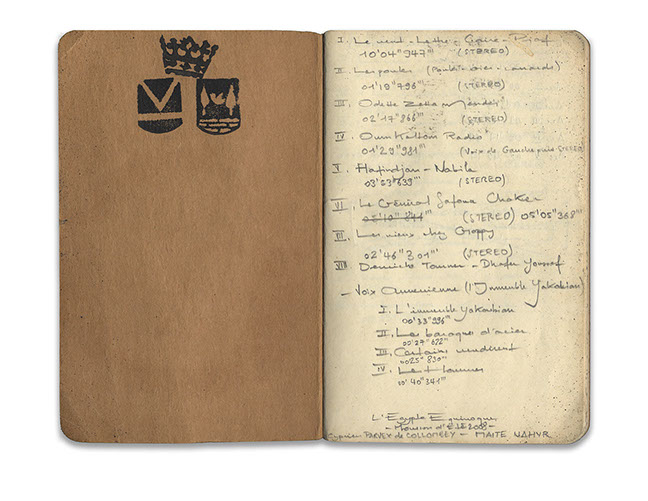 I. Le vent - Lettre - Gaire - Piaf
10'04"947''' (STEREO)
II. Les poules (Poulets - oies - canards)
01'19"796''' (STEREO)
III. Odette
02'17"866''' (STEREO)
IV. Oum Kalsoum Radio
01'29"981''' (Voix de Gauche puis STEREO)
V. Hafindjan - Nabila
03'53"639''' (STEREO)
VI. Le Général Safoua Chaker
05'10"844''' (STEREO) 05'05"368'''
VII. Les vieux chez Groppy
02'46"301''' (STEREO)
VIII. Derviche Tanneur - Dhafer Youssef
- Voix Armenienne (l'Immeuble Yakobian)
I. L'immeuble Yakobian
00'33"996'''
II. Les baraques d'acier
00'27"672'''
III. Certains
00'25"830'''
IV. Les Hommes
00'40"341'''
L'Egypte Equivoque
- d'Eté 2008 -
PARVEX de COLLOMBEY - MAITE VAHYR